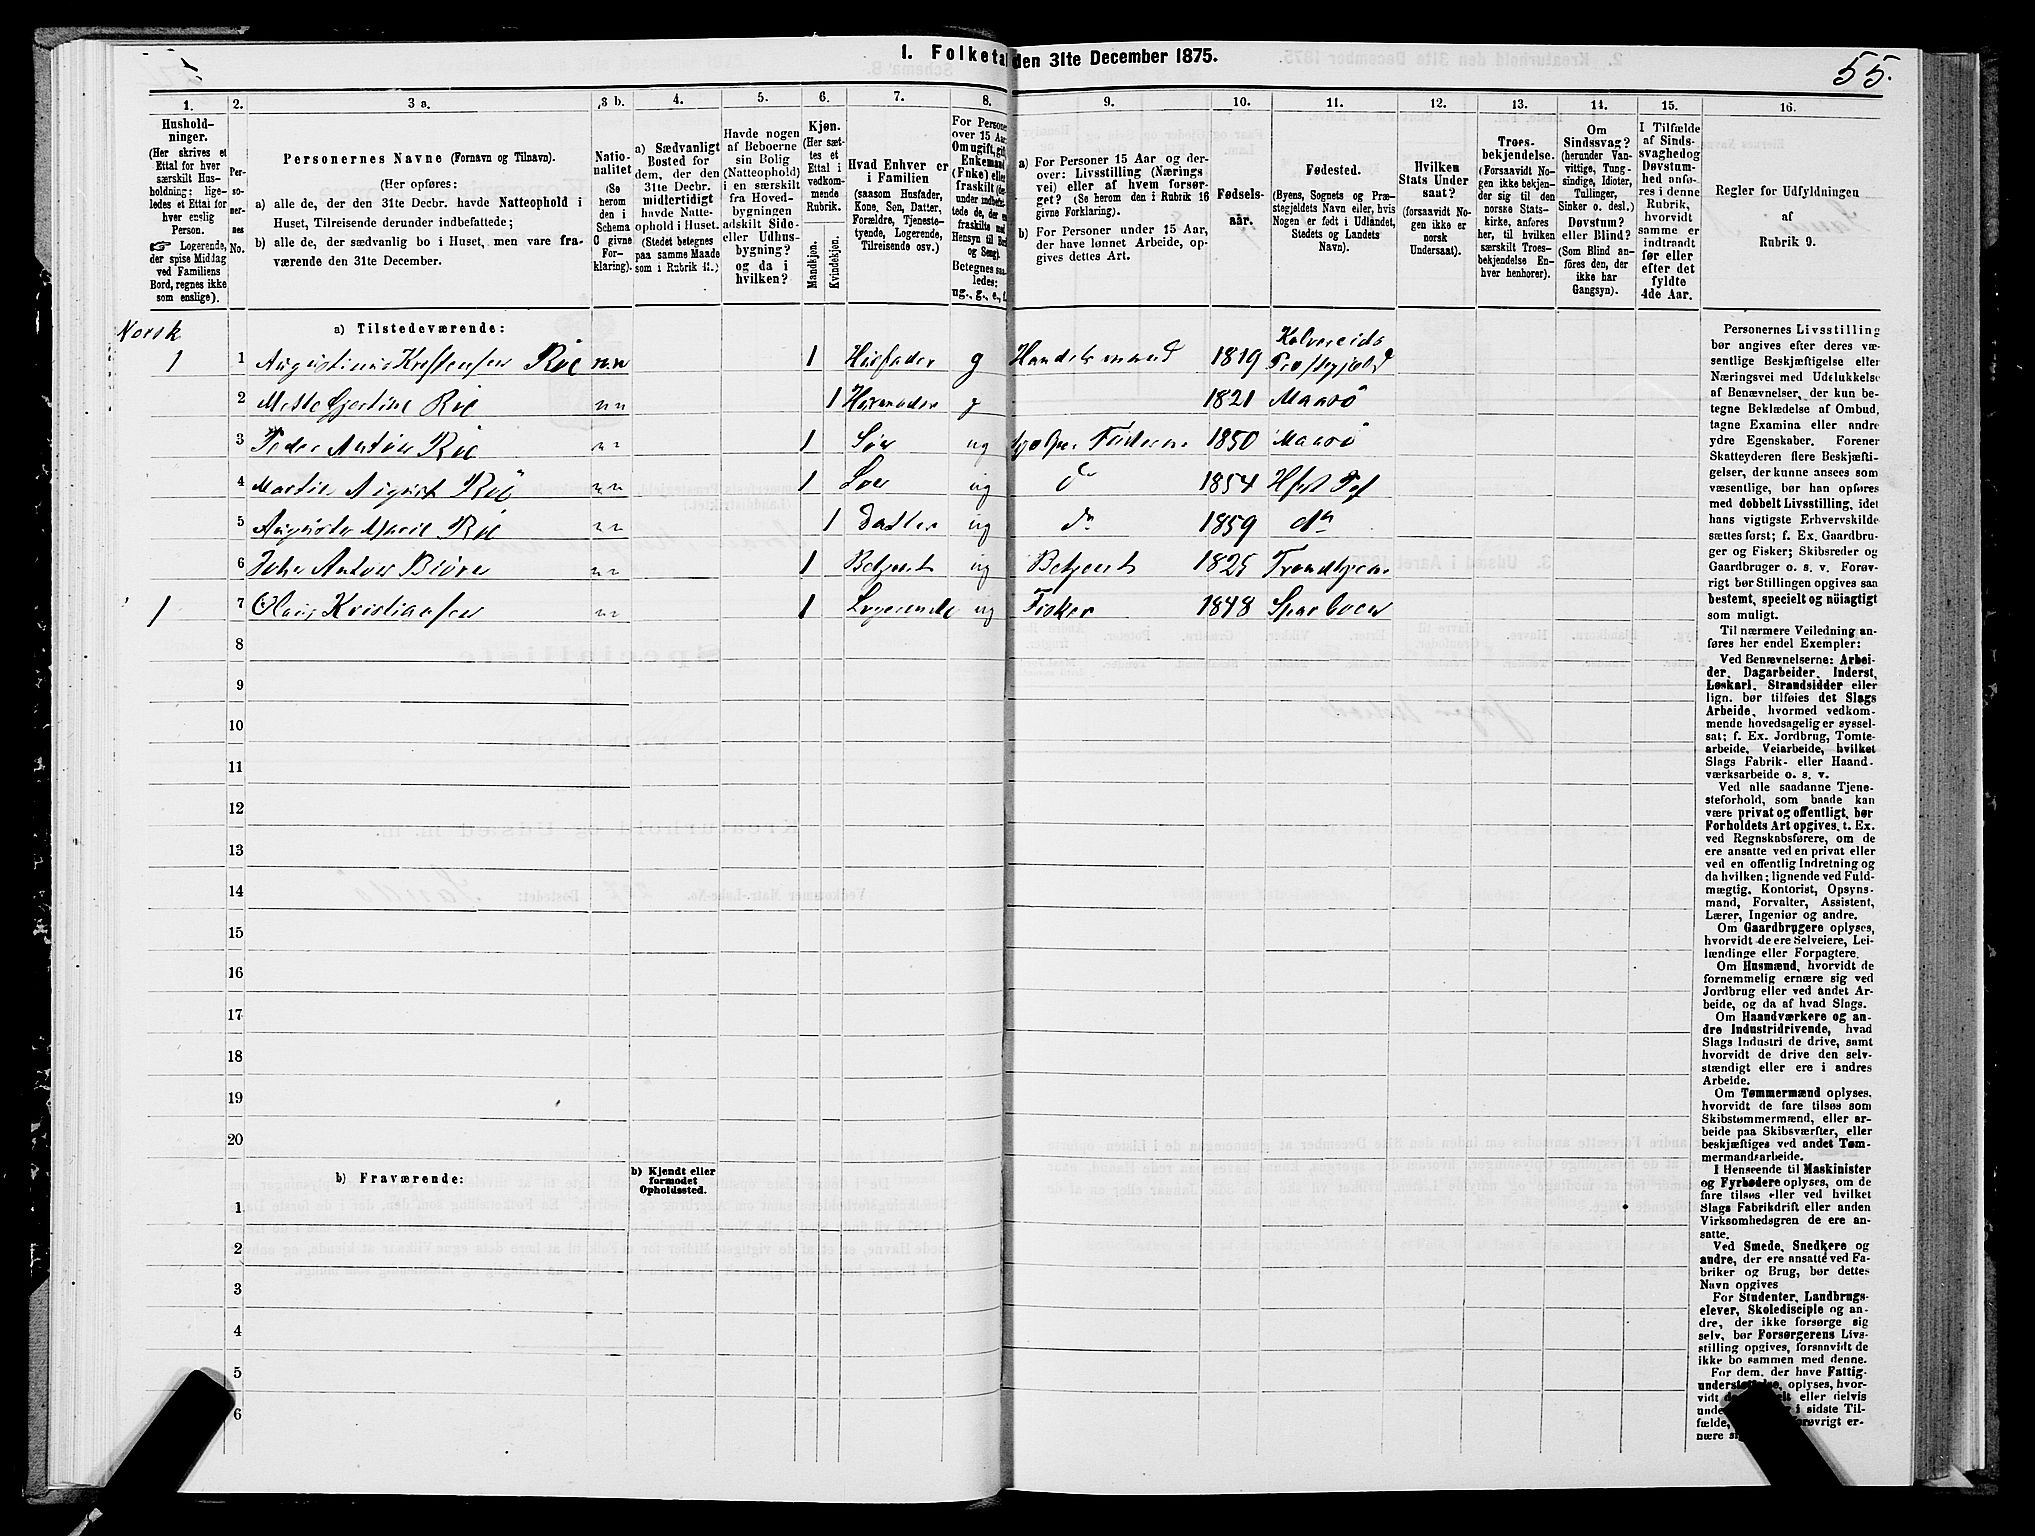 1. Folketa den 31te December 1875.
55.
1. 2. 3 a. 3 b. 4. 5. 6. 7. 8. 9. 10. 11. 12. 13. 14. 15. 16.
Hushold-
ninger.
(Her skrives et
Ettal for hver
særskilt Hus-
holdning; lige-
ledes et Ettal for
hver enslig
Person.
☞ Logerende,
der spise Middag
ved Familiens
Bord, regnes ikke
som enslige).
Per-
so-
ner-
nes
No.
Personernes Navne (Fornavn og Tilnavn).
(Her opføres:
a) alle de, der den 31te Decbr. havde Natteophold i
Huset, Tilreisende derunder indbefattede;
b) alle de, der sædvanlig bo i Huset, men vare fra-
værende den 31te December.
Natio-
nalitet
(Se
herom
den i
Schema
O givne
For-
klaring).
a) Sædvanligt
Bosted for
dem, der den
31te Decbr.
midlertidigt
havde Natte-
ophold i Huset.
(Stedet betegnes
paa samme Maade
som i Rubrik 11.)
Havde nogen
af Beboerne
sin Bolig
(Natteophold)
i en særskilt
fra Hoved-
bygningen
adskilt Side-
eller Udhus-
bygning?
og da i
hvilken?
Kjøn.
(Her sæt-
tes et
Ettal i
vedkom-
mende
Rubrik.
Mandkjøn.
Kvindekjøn.
Hvad Enhver er
i Familien
(saasom Husfader,
Kone, Søn, Datter,
Forældre, Tjeneste-
tyende, Logerende,
Tilreisende osv.)
For Personer
over 15 Aar
Om ugift, gift
Enkemand
(Enke) eller
fraskilt
Betegnes saa-
ledes:
ug., g., e., f.
a) For Personer 15 Aar og der-
over: Livsstilling (Nærings
vei) eller af hvem forsør-
get? (Se herom den i Rubrik 16
givne Forklaring).
b) For Personer under 15 Aar,
der have lønnet Arbeide, op-
gives dettes Art.
Fødsels-
aar.
Fødested.
(Byens, Sognets og Præ-
stegjeldets Navn eller, hvis
Nogen er født i Udlandet,
Stedets og Landets
Navn).
Hvilken
Stats Under
saat?
(forsaavidt No-
gen ikke er
norsk
Undersaat).
Troes-
bekjendelse.
(Forsaavidt No-
gen ikke bekjen-
der sig til den
norske Stats-
kirke, anføres
her, til hvilken
særskilt Troes-
bekjendelse En-
hver henhorer).
Om
Sindssvag?
(herunder Van-
vittige, Tung-
sindige, Idioter,
Tullinger,
Sinker o. desl.)
Døvstum?
eller Blind?
(Som Blind an-
føres den, der
ikke har
Gangsyn).
I Tilfælde
af Sinds-
svaghed og
Døvstum-
hed anfø-
res i denne
Rubrik,
hvorvidt
samme er
indtraadt
før eller
efter det
fyldte
4de Aar.
Regler for Udfyldningen
af
Rubrik 9.
Norsk
a) Tilstedeværende:
1 1 Roe n.n 1 Husfader g Handelsmand 1819
2 Mette Roe nn 1 Husmoder g 1821 Maasö
3 Peder Anton Roe nn 1 Sön ug 1850 Maasö
4 Martin August Roe nn 1 Sön ug do 1854
5 Augusta Marie Roe nn 1 Datter ug do 1859 do
6 Johan Anton nn 1 Betjent ug Betjent 1825 Trondhjem
1 7 Olaus Kristiansen nn 1 Logerende ug Fisker 1848 Sparboen
8
9
10
11
12
13
14
15
16
17
18
19
20
b) Fraværende:
b) Kjendt eller
formodet
Opholdssted.
1
2
3
4
5
6
Personernes Livsstilling
bør angives efter deres væ-
sentlige Beskjæftigelse eller
Næringsvei med Udelukkelse
af Benævnelser, der kun be-
tegne Beklædelse af Ombud,
tagne Examina eller andre
ydre Egenskaber. Forener
Skatteyderen flere Beskjæfti-
gelser, der kunne ansees som
væsentlige, bør han opføres
med dobbelt Livsstilling, idet
hans vigtigste Erhvervskilde
sættes først; f. Ex. Gaardbru-
ger og Fisker; Skibsreder og
Gaardbruger o. s. v. Forøv-
rigt bør Stillingen opgives saa
bestemt, specielt og nöiagtigt
som muligt.
Til nærmere Veiledning an-
føres her endel Exempler:
Ved Benævnelserne: Arbei-
der, Dagarbeider, Inderst,
Løskarl, Strandsidder eller
lign. bør tilføies det Slags
Arbeide, hvormed vedkom-
mende hovedsagelig er syssel-
sat; f. Ex. Jordbrug, Tomte-
arbeide, Veiarbeide, hvilket
Slags Fabrik- eller Haand-
værksarbeide o. s. v.
Ved alle saadanne Tjene-
steforhold, som baade kan
være privat og offentligt, bør
Forholdets Art opgives, t. Ex.
ved Regnskabsførere, om de
ere ansatte ved en privat eller
ved en offentlig Indretning og
da hvilken; lignende ved Fuld-
mægtig, Kontorist, Opsyns-
mand, Forvalter, Assistent,
Lærer, Ingeniør og andre.
Om Gaardbrugere oplyses,
hvorvidt de ere Selveiere, Lei-
lændinge eller Forpagtere.
Om Husmænd, hvorvidt de
fornemmelig ernære sig ved
Jordbrug eller ved andet Ar-
beide, og da af hvad Slags.
Om Haandværkere og an-
dre Industridrivende, hvad
Slags Industri de drive, samt
hvorvidt de drive den selv-
stændigt eller ere i andres
Arbeide.
Om Tømmermænd oplyses,
hvorvidt de fare tilsøs som
Skibstømmermænd, eller ar-
beide paa Skibsværfter, eller
beskjæftiges ved andet Tøm-
mermandsarbeide.
I Henseende til Maskinister
og Fyrbødere oplyses, om de
fare tilsøs eller ved hvilket
Slags Fabrikdrift eller anden
Virksomhedsgren de ere an-
satte.
Ved Smede, Snedkere og
andre, der ere ansatte ved Fa-
briker og Brug, bør dettes
Navn opgives
For Studenter, Landbrugs-
elever, Skoledisciple og an-
dre, der ikke forsørge sig
selv, bør Forsørgerens Livs-
stilling opgives, forsaavidt de
ikke bo sammen med denne.
For dem, der have Fattig-
understøttelse, oplyses, hvor-
vidt eller delvis
i sidste Til-
fælde,